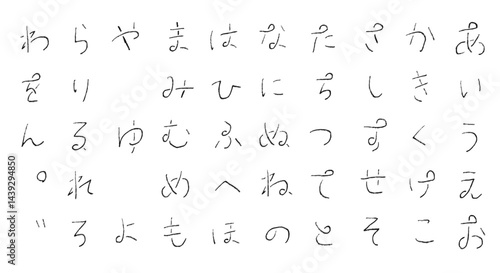 あいうえお
かきくけこ
さしすせそ
たちつてと
なにぬねの
はひふへほ
まみむめも
やゆよ
らりるれろ
わをん゜゛
Adobe Stock | #1439294850